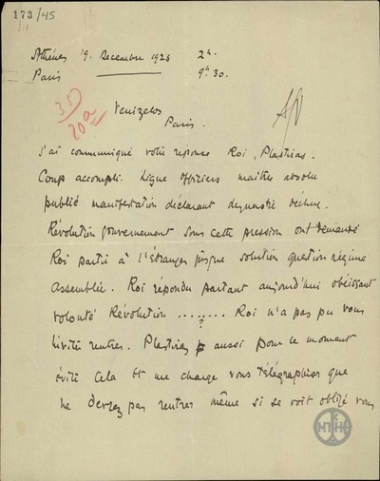 173/45
Athénes 19 Decembre 1923 2h.
Paris 9h 30.
Venizelos
Paris.
J'ai communiqué votre reponse Roi, Plastiras.
Coup accompli. Ligue officiers maître absolue
publié manifestation déclarant dynastie déchue.
Révolution gouvernement sous cette pression ont demandé
Roi partir à l'étranger jusque solution question régime
Assemblée. Roi répondu partant aujourd'hui obéissant
volonté Révolution ......... Roi n'a pas pu vous
?
inviter rentrer. Plastiras aussi pour le moment
évité cela et me charge vous télégraphier que
ne devrez pas rentrer même si se voit obligé vous